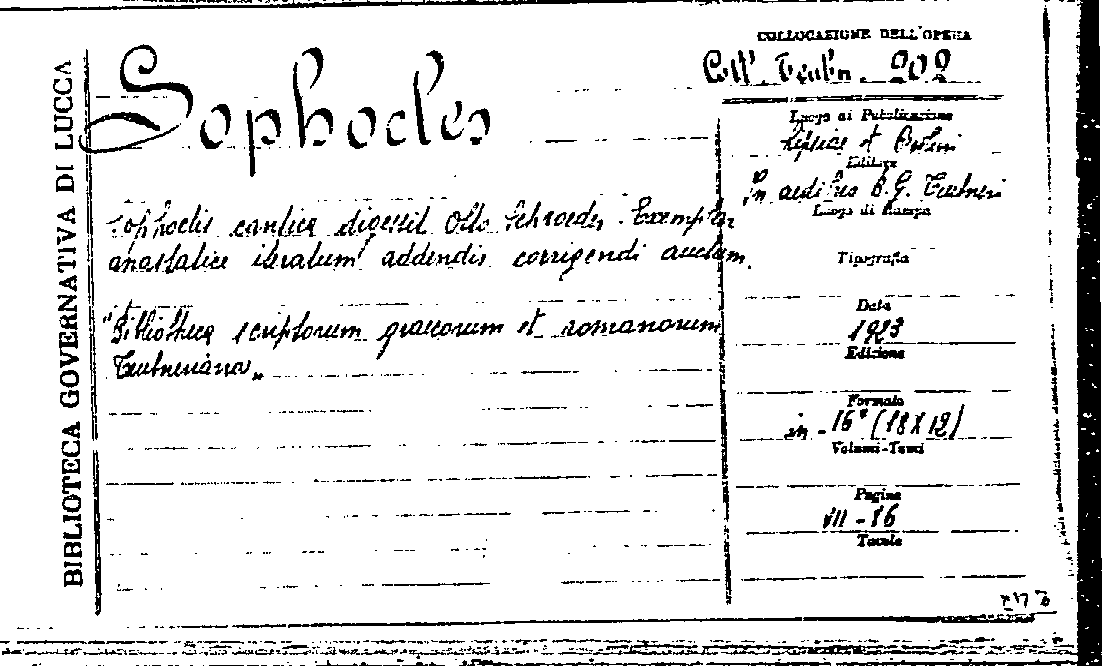 BIBLIOTECA GOVERNATIVA DI LUCCA
Sophocles
Sophoclis cantica digessit Otto Schroeder. Exemplar
anastatice iteratum addendis corrigendi auctum.
"Bibliotheca scriptorum graecorum et romanorum
Teubneriana"
COLLOCAZIONE DELL'OPERA
Coll. Teubn. 202
Luogo di Pubblicazione
Lipsiae et Berlini
Editore
In aedibus B. G. Teubneri
Luogo di Stampa
Tipografia
Data
1923
Edizione
Formato
in-16° (18X12)
Volumi-Tomi
Pagine
VII-86
Tavole